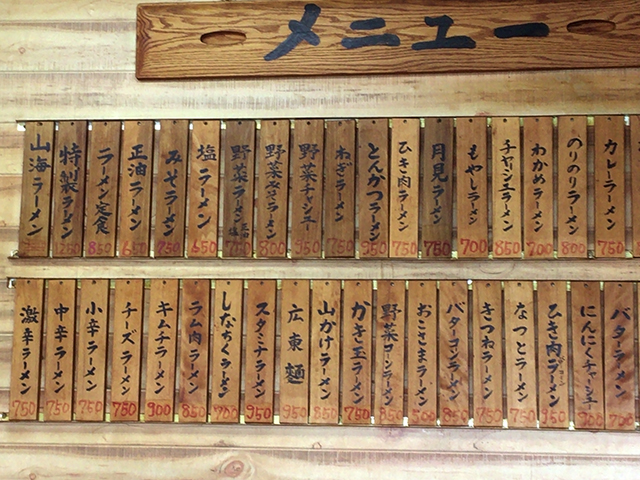 メニュー
山海ラーメン
特製ラーメン 1250
ラーメン定食 850
正油ラーメン 650
みそラーメン 750
塩ラーメン 650
野菜ラーメン 正口 塩
野菜みそラーメン 800
野菜チャシュー 950
ねぎラーメン 750
とんかつラーメン 950
ひき肉ラーメン 750
月見ラーメン 750
もやしラーメン 700
チャシュエラーメン 850
わかめラーメン 700
のりのりラーメン 800
カレーラーメン 750
激辛ラーメン 750
中辛ラーメン 750
小辛ラーメン 750
チーズラーメン 750
キムチラーメン 900
ラム肉ラーメン 850
しなちくラーメン 700
スタミナラーメン 950
広東麺 950
山かけラーメン 850
かき玉ラーメン 750
野菜コーンラーメン 850
おこさまラーメン 500
バターコンラーメン 850
きつねラーメン 750
なっとラーメン 750
ひき肉ラーメン 950
にんにくチャーシュー 900
バターラーメン 700